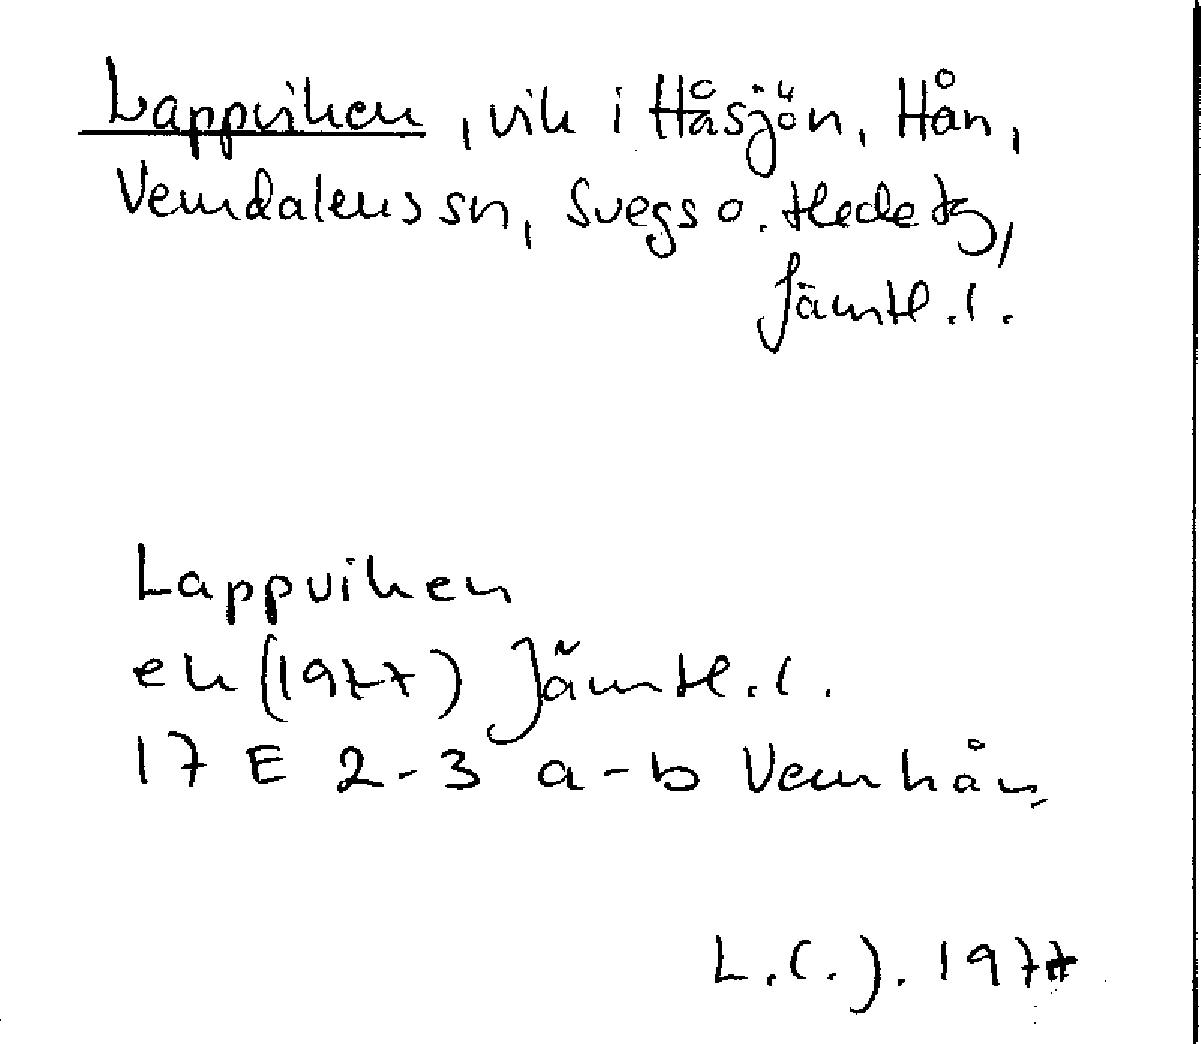 Lappviken, vik i Håsjön, Hån,
Vemdalens sn, Svegs o. Hede tg,
Jämtl. l.
Lappviken
ek (1977) Jämtl. l.
17 E 2-3 a-b Vemhån
L.C.J. 1977